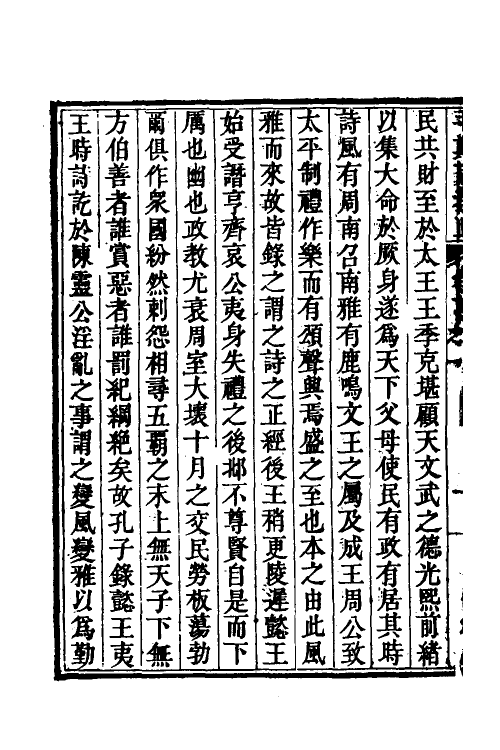 民共財至於太王王季克堪顧天文武之德光熙前緒
以集大命於厥身遂爲天下父母使民有政有居其時
詩風有周南召南雅有鹿鳴文王之屬及成王周公致
太平制禮作樂而有頌聲興焉盛之至也本之由此風
雅而來故皆錄之謂之詩之正經後王稍更陵遲懿王
始受譖亨齊哀公夷身失禮之後邶不尊賢自是而下
厲也幽也政教尤衰周室大壞十月之交民勞板蕩勃
爾俱作衆國紛然刺怨相尋五霸之末上無天子下無
方伯善者誰賞惡者誰罰紀綱絶矣故孔子錄懿王夷
王時詩訖於陳靈公淫亂之事謂之變風變雅以爲勤